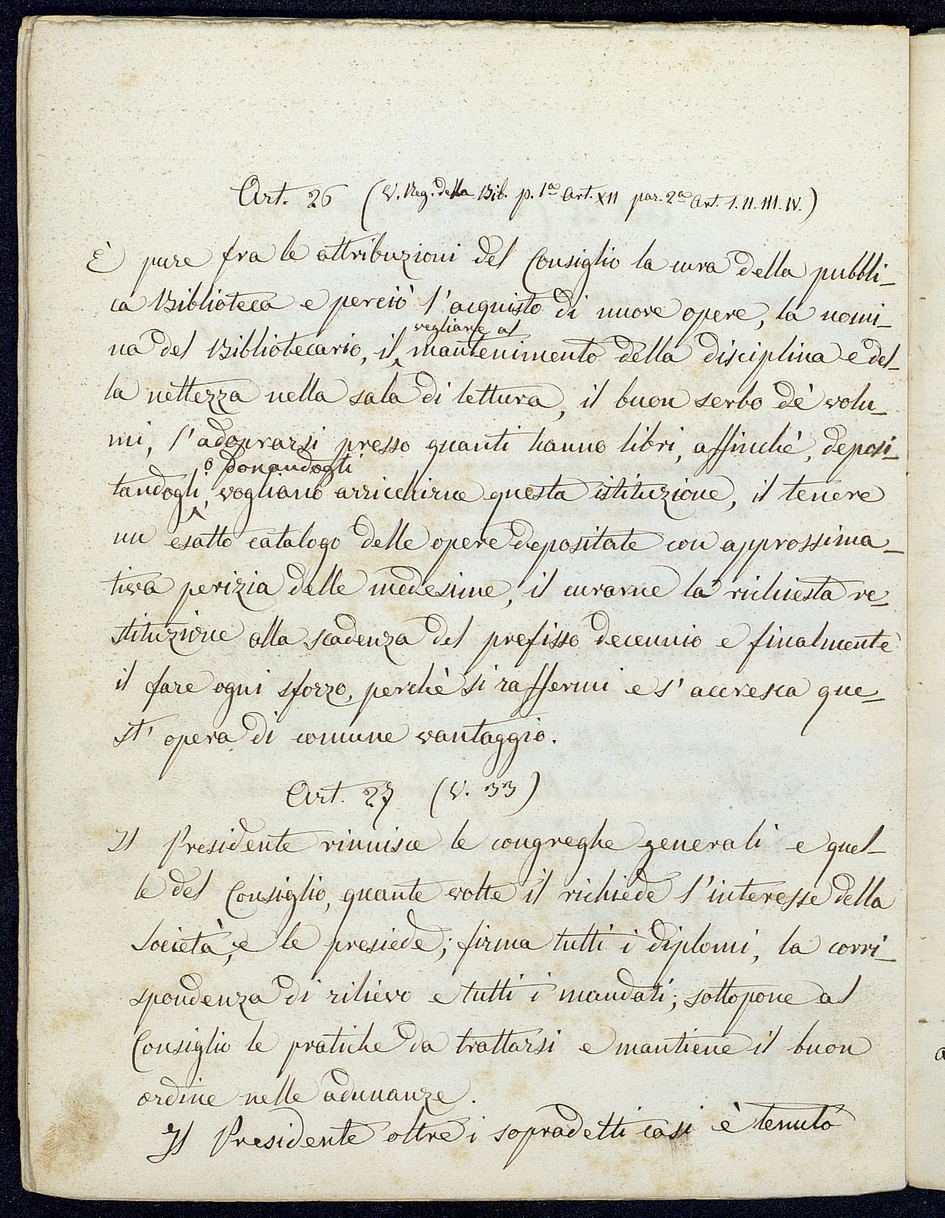 Art. 26 (V. Reg. della Bib. p. 1ª Art. XII par. 2ª Art. I. II. III. IV.)
È pure fra le attribuzioni del Consiglio la cura della pubbli-
ca Biblioteca e perciò l'acquisto di nuove opere, la nomi-
vegliare al
na del Bibliotecario, il mantenimento della disciplina e del-
la nettezza nella sala di lettura, il buon serbo dè volu-
mi, l'adoprarsi presso quanti hanno libri, affinchè, deposi-
o donandogli
tandogli, vogliano arricchirne questa istituzione, il tenere
un esatto catalogo delle opere depositate con approssima-
tiva perizia delle medesime, il curarne la richiesta re-
stituzione alla scadenza del prefisso decennio e finalmente
il fare ogni sforzo, perchè si raffermi e s'accresca que-
st' opera di comune vantaggio.
Art. 27 (V. 33)
Il Presidente riunisce le congreghe generali e quel-
le del Consiglio, quante volte il richiede l'interesse della
Società, e le presiede; firma tutti i diplomi, la corri-
spondenza di rilievo e tutti i mandati; sottopone al
Consiglio le pratiche da trattarsi e mantiene il buon
ordine nelle adunanze.
Il Presidente oltre i sopradetti casi è tenuto